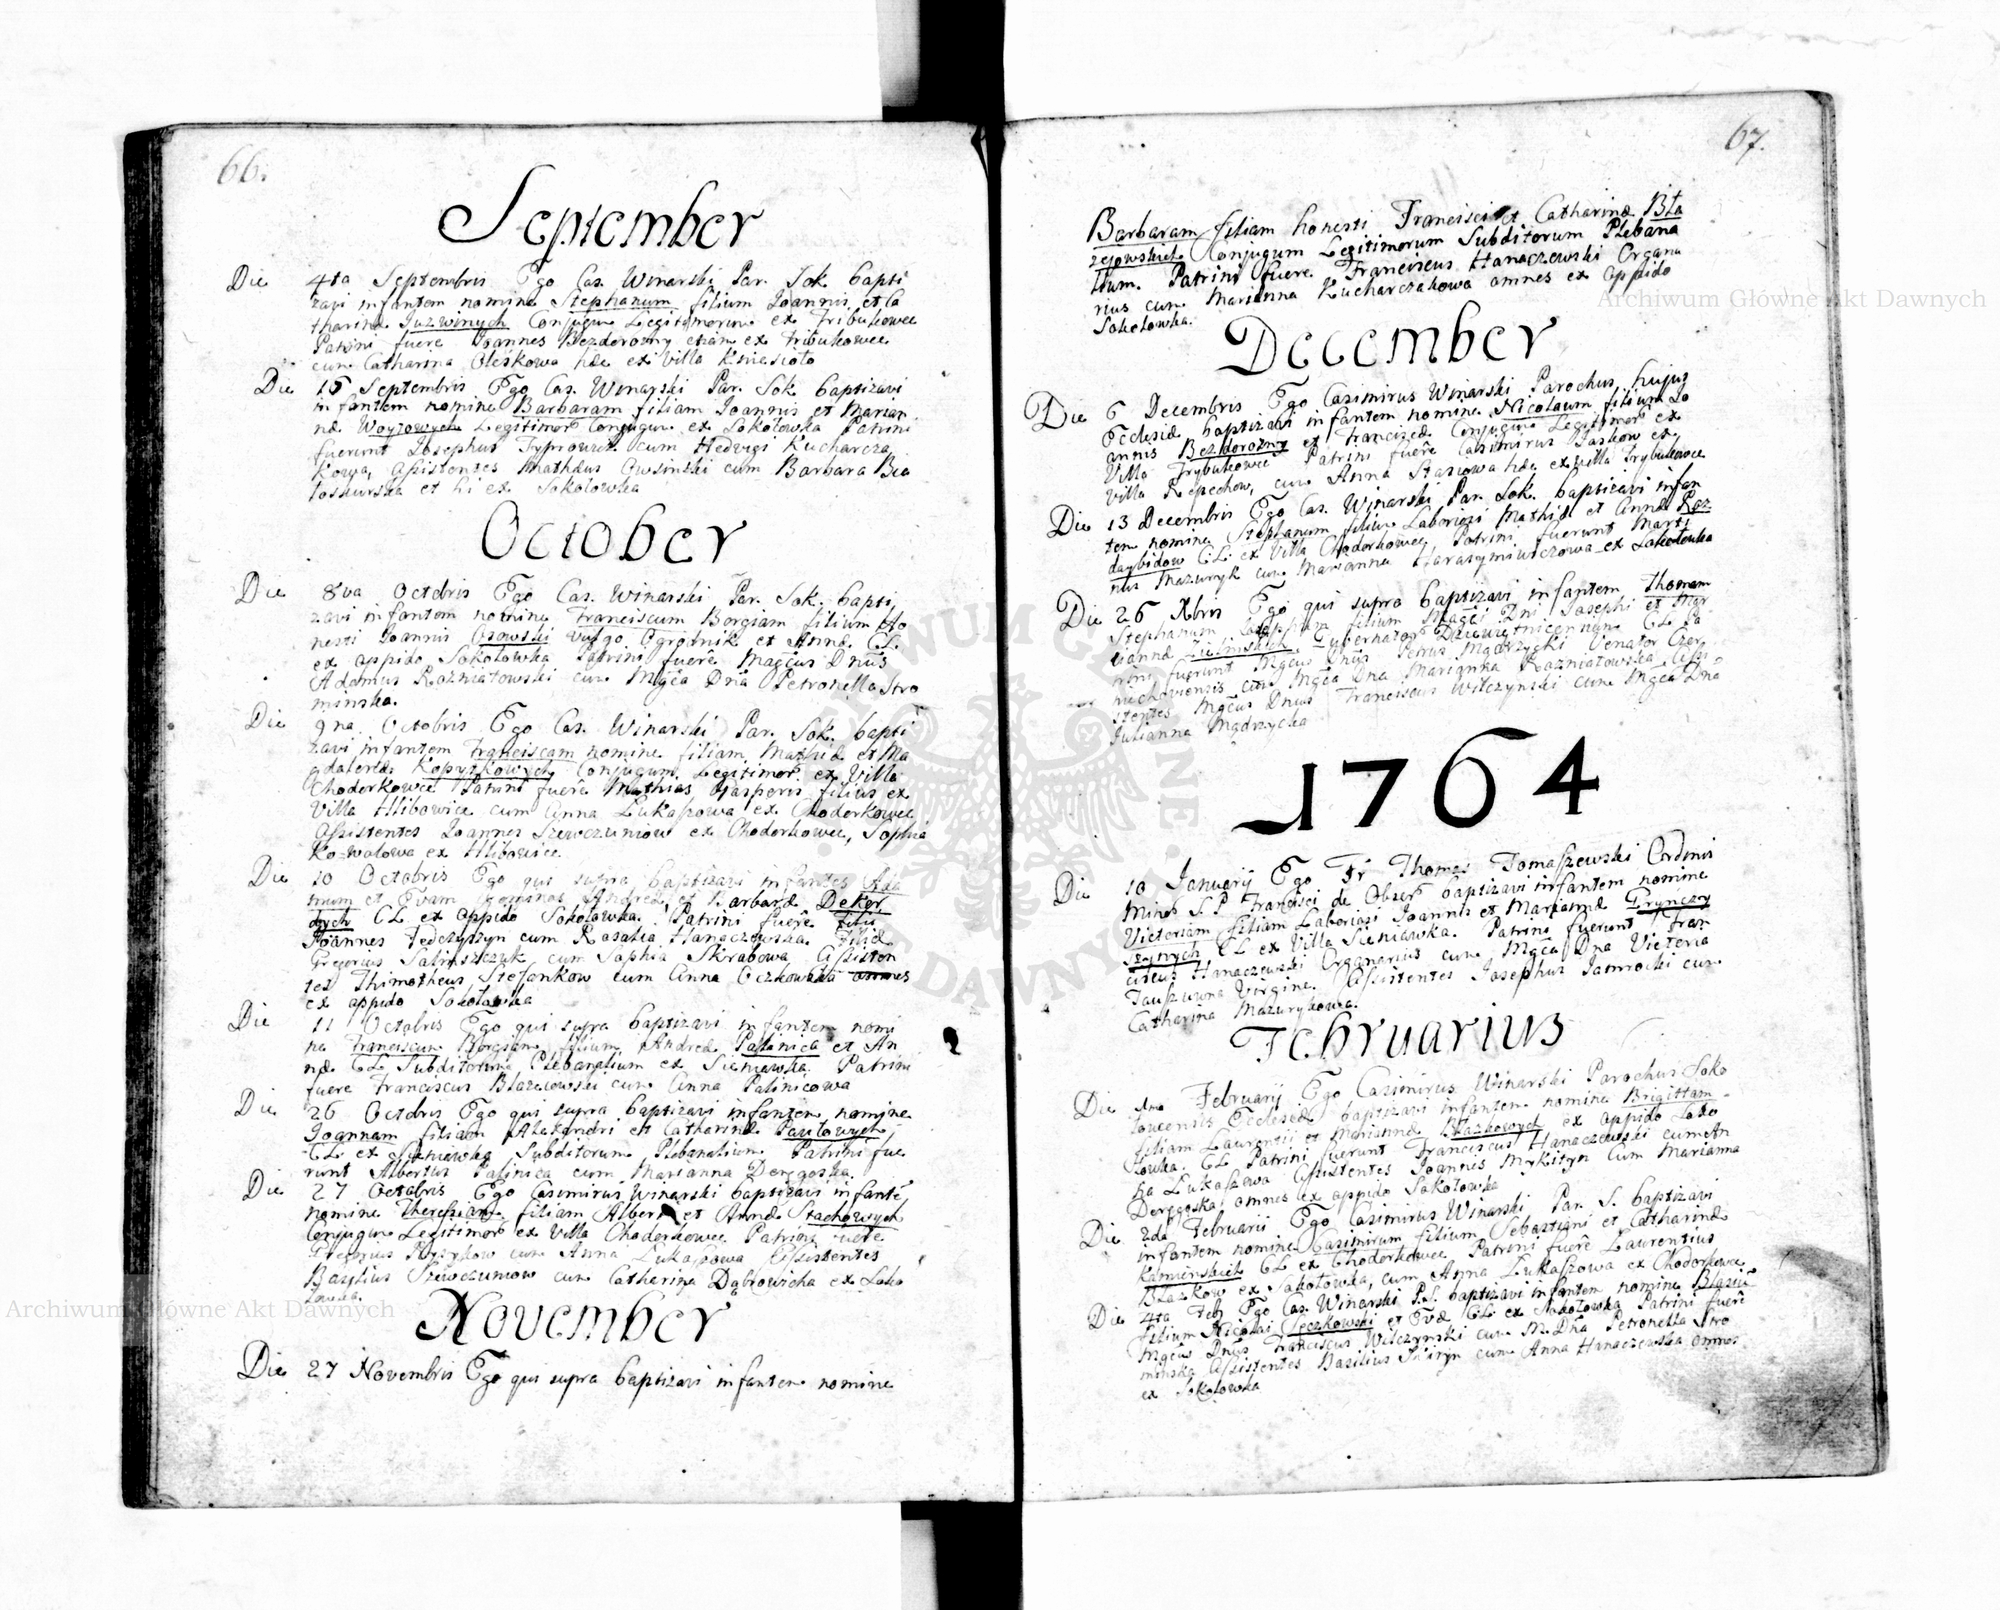 66.
September
Die 4ta Septembris Ego Cas. Winarski Par. Sok. bapti
zavi infantem nomine Stephanum filium Joannis et Ca
tharinæ Juzwinych Conjugum Legitimorum ex Tribuhowce
Patrini fuere Joannes Bezdorozny etiam ex Tribuhowce
cum Catharina Oleskowa hæc ex Villa Kniesioło
Die 15 Septembris Ego Cas. Winarski Par. Sok. baptizavi
infantem nomine Barbaram filiam Joannis et Marian
næ Legitimor Conjugum ex Sokołowka Patrini
fuerunt Josephus cum Hedvigi Kucharcza
kowa, Assistentes Mathæus Owsinski cum Barbara Bia
łoskurska et hi ex Sokołowka
October
Die 8va Octobris Ego Cas. Winarski Par. Sok. bapti
zavi infantem nomine Franciscum Borgiam filium Ho
nesti Joannis Osowski vulgo Ogrodnik et Annæ CL.
ex oppido Sokołowka Patrini fuerê Magcus Dnus
Adamus Rozniatowski cum Mgca Dna Petronella Stro
minska.
Die 9na Octobris Ego Cas. Winarski Par. Sok. bapti
zavi infantem Franciscam nomine filiam Mathiæ et Ma
gdalenæ Kopyrkowych Conjugum Legitimor. ex Villa
Chodorkowce Patrini fuêre Mathias Gasperis filius ex
Villa Hlibowice cum Anna Lukaszowa ex Chodorkowce
Assistentes Joannes Szewczuniow ex Chodorkowce, Sophia
Kowalowa ex Hlibowice.
Die 10 Octobris Ego qui supra baptizavi infantes Ada
mum et Evam Geminos Andreæ et Barbaræ Deker
dych CL ex oppido Sokołowka. Patrini fuêre filii
Joannes Fedczyszyn cum Rosalia Hanaczowska. Filiæ
Gregorius cum Sophia Skrabowa Assisten
tes Thimotheus Stefankow cum Anna Oczkowska omnes
ex oppido Sokołowka
Die 11 Octobris Ego qui supra baptizavi infantem nomi
ne Franciscum Borgiam filium Andreæ Palinica et An
næ CL Subditorum Plebanalium ex Sieniawka. Patrini
fuere Franciscus Blazeiowski cum Anna Palinicowa
Die 26 Octobris Ego qui supra baptizavi infantem nomine
Joannam filiam Alexandri et Catharinæ Pawlowych
CL ex Sieniawka Subditorum Plebanalium Patrini fue
runt Albertus Palinica cum Marianna Deregoska.
Die 27 Octobris Ego Casimirus Winarski baptizavi infantê
nomine Theresiam filiam Alberti et Annæ Stachowych
Conjugum Legitimor ex Villa Chodorkowce Patrini fuêre
Gregorius cum Anna Lukaszowa Assistentes
Basylius Szewczuniow cum Catharina Dąbrowicka ex Soko
łowka.
November
Die 27 Novembris Ego qui supra baptizavi infantem nomine
67.
Barbaram filiam honesti Francisci et Catharinæ Bła
zejowskich Conjugum Legitimorum Subditorum Plebana
lium. Patrini fuêre Franciscus Hanaczewski Organa
rius cum Marianna Kucharczakowa omnes ex oppido
Sokołowka.
December
Die 6 Decembris Ego Casimirus Winarski Parochus hujus
Ecclesiæ baptizavi infantem nomine Nicolaum filium Jo
annis Bezdorozny et Franciscæ Conjugum Legitimor ex
Villa Trybuhowce Patrini fuêre Casimirus Baskow ex
Villa Repechow, cum Anna Stasiowa hæc ex Villa Trybuhowce
Die 13 Decembris Ego Cas. Winarski Par. Sok. baptizavi infan
tem nomine Stephanum filium Laboriosi Mathiæ et Annæ Roz
daybidow CL. ex Villa Chodorkowce Patrini fuerunt Marti
nus Mazuryk cum Marianna Harasymiwiczowa ex Sokołowka
Die 26 Xbris Ego qui supra baptizavi infantem Thomam
Stephanum filium Magci Dni Josephi et Mar
iannæ CL Pa
trini fuerunt Mgcus Dnus Petrus Mądrzycki Venator Czer
niechoviensis cum Mgca Dna Marianna Rozniatowska Assi
stentes Mgcus Dnus Franciscus Wilczynski cum Mgca Dna
Julianna Mądrzycka
1764
Die 10 Januarii Ego Fr Thomas Tomaszewski Ordinis
Minor S. P. Francisci de Obser baptizavi infantem nomine
Victoriam filiam Laboriosi Joannis et Mariannæ Grynczy
szynych CL ex Villa Sieniawka. Patrini fuerunt Fran
ciscus Hanaczewski Organarius cum Mgca Dna Victoria
Virgine. Assistentes Josephus Jamrocki cum
Catharina Mazurykowa.
Februarius
Die Februarii Ego Casimirus Winarski Parochus Soko
lovensis Ecclesiæ baptizavi infantem nomine Brigittam
filiam Laurentii et Mariannæ Błazkowych ex oppido Soko
łowka. CL Patrini fuerunt Franciscus Hanaczewski cum An
na Lukaszowa Assistentes Joannes Mykityn cum Marianna
Deregoska omnes ex oppido Sokołowka
Die 2da Februarii Ego Casimirus Winarski Par. S. baptizavi
infantem nomine Casimirum filium Sebastiani et Catharinæ
Kamienskich CL ex Chodorkowce Patrini fuêre Laurentius
Błazkow ex Sokołowka, cum Anna Lukaszowa ex Chodorkowce
Die 4ta Feb Ego Cas. Winarski P.S. baptizavi infantem nomine Blasiû
filium Nicolai Seczkowski et Evæ CL ex Sokołowka Patrini fuêre
Mgcus Dnus Franciscus Wilczynski cum M. Dna Petronella Stro
minska Assistentes Basilius cum Anna Hanaczewska omnes
ex Sokołowka
Archiwum Główne Akt Dawnych
Archiwum Główne Akt Dawnych
ARCHIWUM GŁÓWNE AKT DAWNYCH